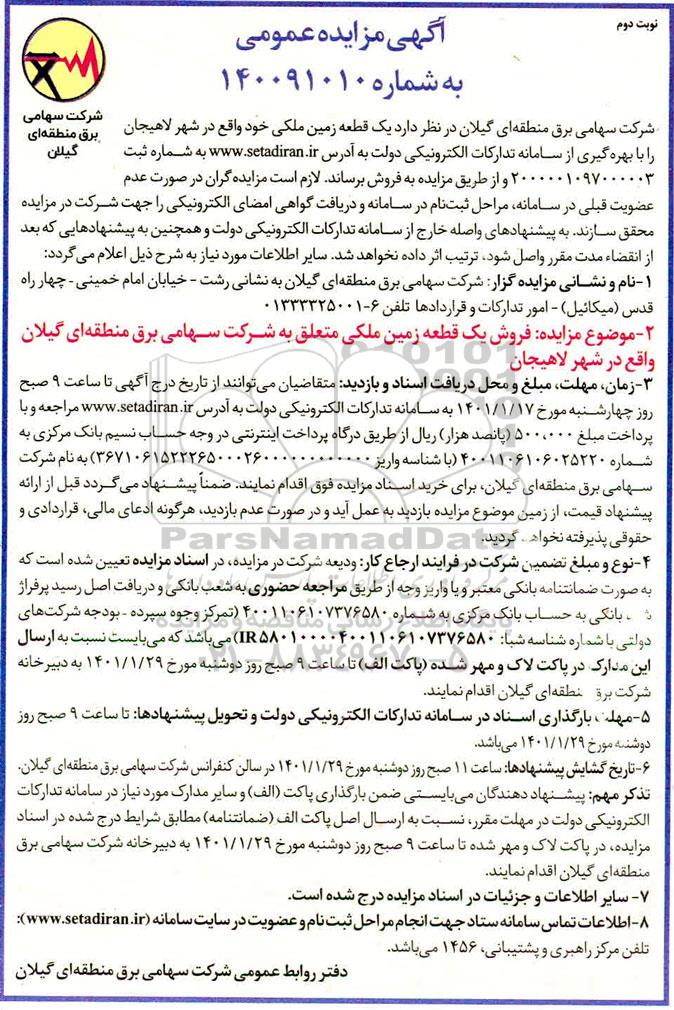 نوبت دوم
آگهی مزایده عمومی
به شماره ۱۴۰۰۹۱۰۱۰
شرکت سهامی
برق منطقه‌ای
گیلان
شرکت سهامی برق منطقه‌ای گیلان در نظر دارد یک قطعه زمین ملکی خود واقع در شهر لاهیجان
را با بهره گیری از سامانه تدارکات الکترونیکی دولت به آدرس www.setadiran.ir به شماره ثبت
۲۰۰۰۰۰۱۰۹۷۰۰۰۰۰۳ و از طریق مزایده به فروش برساند. لازم است مزایده گران در صورت عدم
عضویت قبلی در سامانه، مراحل ثبت‌نام در سامانه و دریافت گواهی امضای الکترونیکی را جهت شرکت در مزایده
محقق سازند. به پیشنهادهای واصله خارج از سامانه تدارکات الکترونیکی دولت و همچنین به پیشنهادهایی که بعد
از انقضاء مدت مقرر واصل شود، ترتیب اثر داده نخواهد شد. سایر اطلاعات مورد نیاز به شرح ذیل اعلام می‌گردد:
۱-نام و نشانی مزایده گزار: شرکت سهامی برق منطقه‌ای گیلان به نشانی رشت - خیابان امام خمینی - چهار راه
قدس (میکائیل) - امور تدارکات و قراردادها تلفن ۶-۰۱۳۳۳۳۲۵۰۰۱
۲-موضوع مزایده: فروش یک قطعه زمین ملکی متعلق به شرکت سهامی برق منطقه‌ای گیلان
واقع در شهر لاهیجان
۳-زمان، مهلت، مبلغ و محل دریافت اسناد و بازدید: متقاضیان می‌توانند از تاریخ درج آگهی تا ساعت ۹ صبح
روز چهارشنبه مورخ ۱۴۰۱/۱/۱۷ به سامانه تدارکات الکترونیکی دولت به آدرس www.setadiran.ir مراجعه و با
پرداخت مبلغ ۵۰۰،۰۰۰ (پانصد هزار) ریال از طریق درگاه پرداخت اینترنتی در وجه حساب نسیم بانک مرکزی به
شماره ۴۰۰۱۱۰۶۱۰۶۰۲۵۲۲۰ (با شناسه واریز ) به نام شرکت
سهامی برق منطقه‌ای گیلان، برای خرید اسناد مزایده فوق اقدام نمایند. ضمناً پیشنهاد می‌گردد قبل از ارائه
پیشنهاد قیمت، از زمین موضوع مزایده بازدید به عمل آید و در صورت عدم بازدید، هرگونه ادعای مالی، قراردادی و
حقوقی پذیرفته نخواهد گردید.
۴-نوع و مبلغ تضمین شرکت در فرایند ارجاع کار: ودیعه شرکت در مزایده، در اسناد مزایده تعیین شده است که
به صورت ضمانتنامه بانکی معتبر و یا واریز وجه از طریق مراجعه حضوری به شعب بانکی و دریافت اصل رسید پرفراژ
بانکی به حساب بانک مرکزی به شماره ۴۰۰۱۱۰۶۱۰۷۳۷۶۵۸۰ (تمرکز وجوه سپرده - بودجه شرکت‌های
دولتی با شماره شناسه شبا: IR۵۸۰۱۰۰۰۰۴۰۰۱۱۰۶۱۰۷۳۷۶۵۸۰) می‌باشد که می‌بایست نسبت به ارسال
این مدارک در پاکت لاک و مهر شده (پاکت الف) تا ساعت ۹ صبح روز دوشنبه مورخ ۱۴۰۱/۱/۲۹ به دبیرخانه
شرکت برق منطقه‌ای گیلان اقدام نمایند.
۵-مهلت بارگذاری اسناد در سامانه تدارکات الکترونیکی دولت و تحویل پیشنهادها: تا ساعت ۹ صبح روز
دوشنبه مورخ ۱۴۰۱/۱/۲۹ می‌باشد.
۶-تاریخ گشایش پیشنهادها: ساعت ۱۱ صبح روز دوشنبه مورخ ۱۴۰۱/۱/۲۹ در سالن کنفرانس شرکت سهامی برق منطقه‌ای گیلان.
تذکر مهم: پیشنهاد دهندگان می‌بایستی ضمن بارگذاری پاکت (الف) و سایر مدارک مورد نیاز در سامانه تدارکات
الکترونیکی دولت در مهلت مقرر، نسبت به ارسال اصل پاکت الف (ضمانتنامه) مطابق شرایط درج شده در اسناد
مزایده، در پاکت لاک و مهر شده تا ساعت ۹ صبح روز دوشنبه مورخ ۱۴۰۱/۱/۲۹ به دبیرخانه شرکت سهامی برق
منطقه‌ای گیلان اقدام نمایند.
۷- سایر اطلاعات و جزئیات در اسناد مزایده درج شده است.
۸-اطلاعات تماس سامانه ستاد جهت انجام مراحل ثبت نام و عضویت در سایت سامانه (www.setadiran.ir):
تلفن مرکز راهبری و پشتیبانی، ۱۴۵۶ می‌باشد.
دفتر روابط عمومی شرکت سهامی برق منطقه‌ای گیلان
ParsNamadData